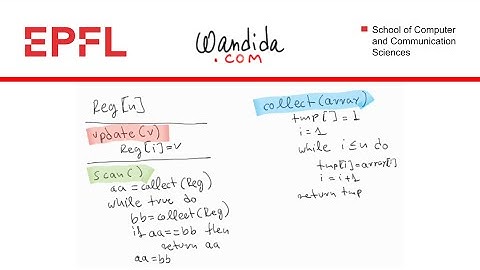 EPFL
wandida
.com
School of Computer
and Communication
Sciences
Reg[n]
update(v)
Reg[i]=v
scan()
aa=collect(Reg)
while true do
bb=collect(Reg)
if aa==bb then
return aa
aa=bb
collect(array)
tmp[]=1
i=1
while i≤n do
tmp[i]=array[i]
i=i+1
return tmp